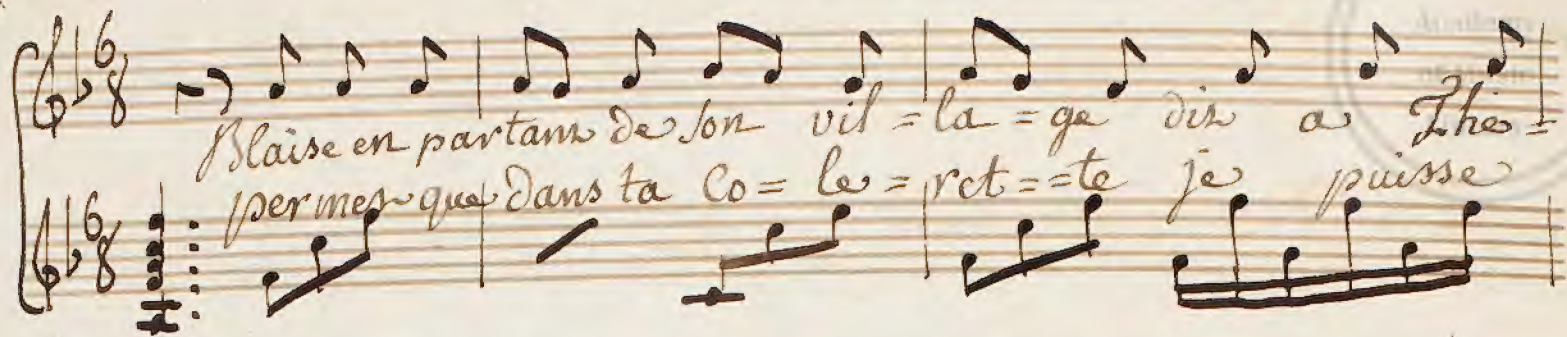 Blaise en partant de son vil=la=ge dit a Thé=
permet que dans ta Co=le=ret==te je puisse